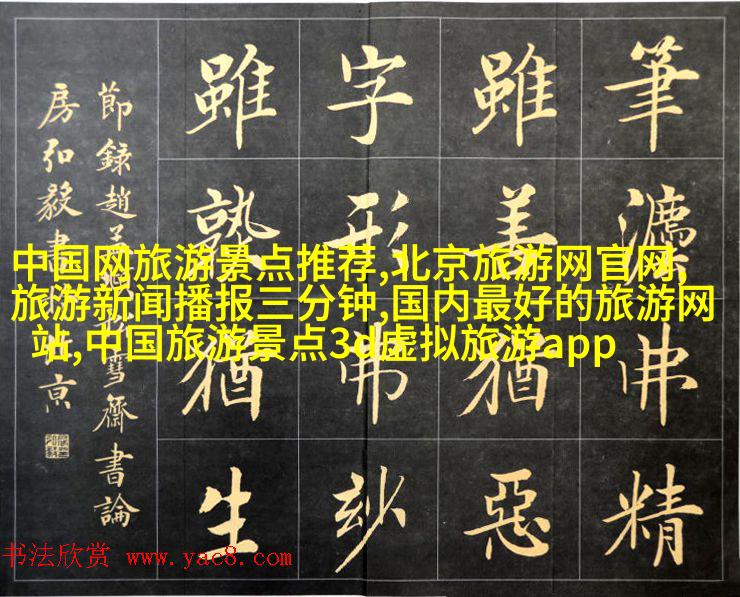 筆灋弗精
雖善猶惡
字形弗妙
雖熟猶生
節錄趙孟雪齋書論
房弘毅書京
中国网旅游景点推荐,北京旅游网官网,
旅游新闻播报三分钟,国内最好的旅游网
站,中国旅游景点3d虚拟旅游app
书法欣赏 www.yac8.com